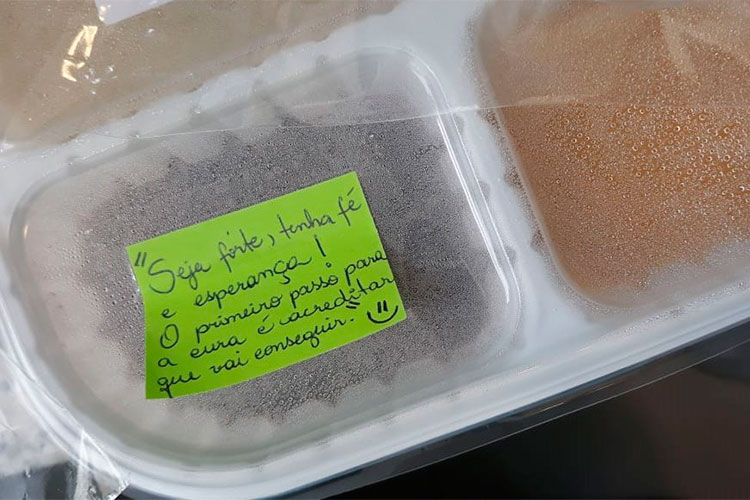 "Seja forte, tenha fé
e esperança!
O primeiro passo para
a cura é acreditar
que vai conseguir."